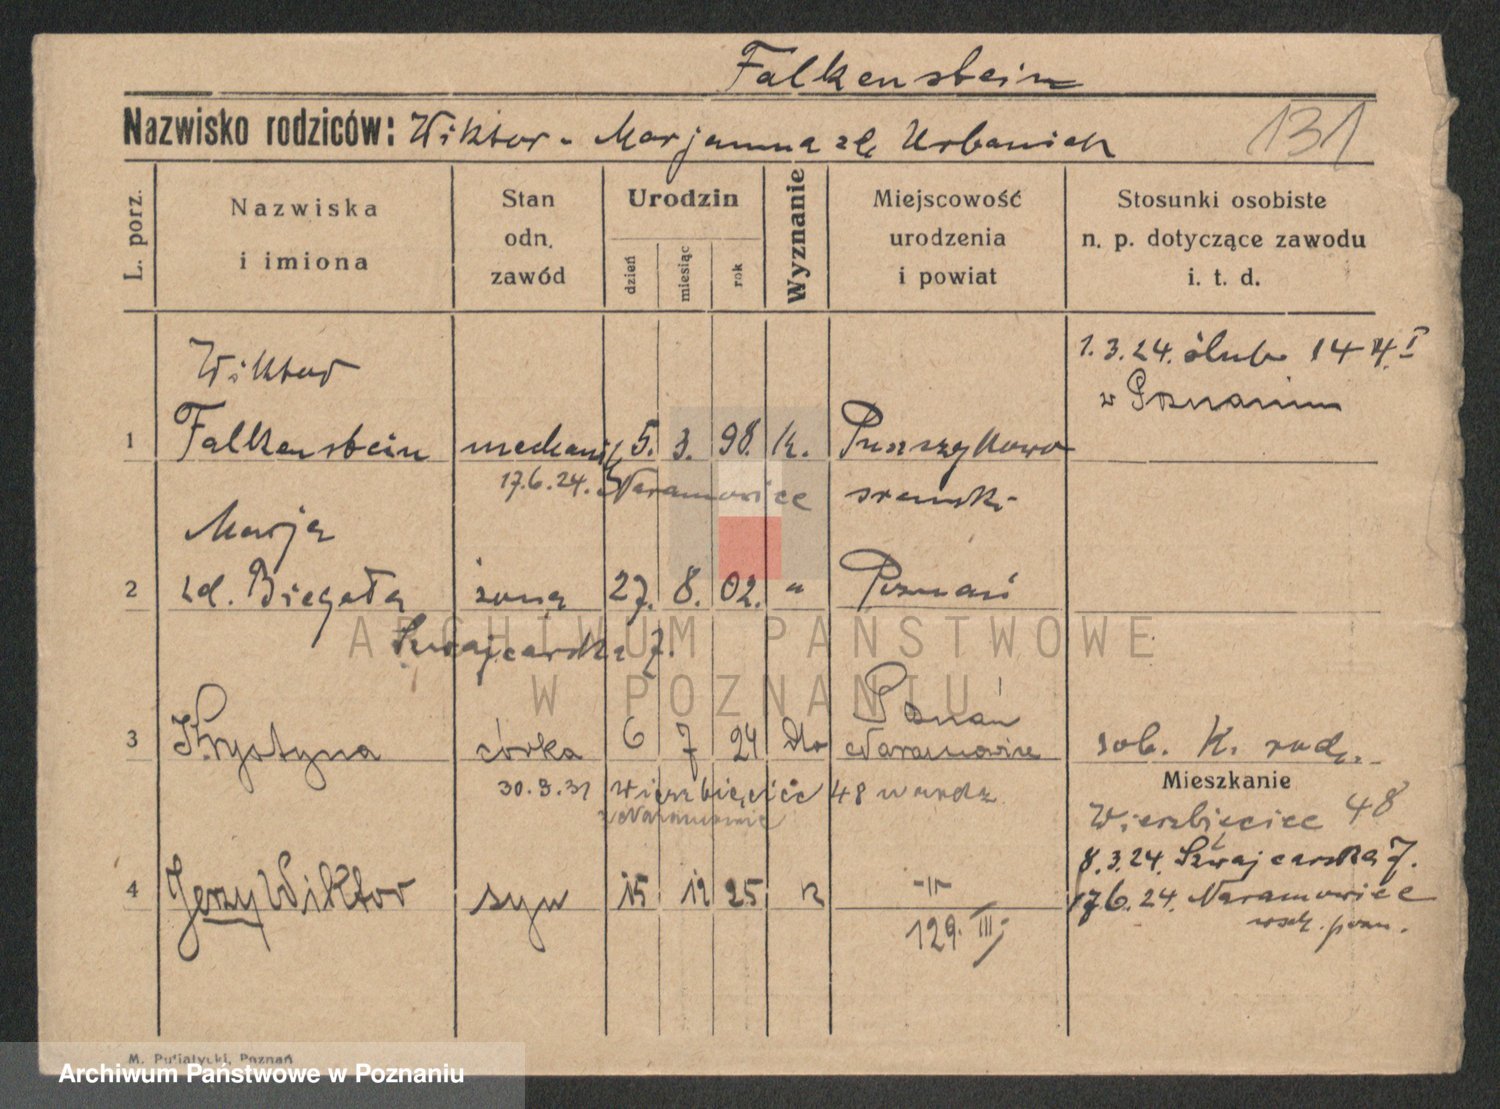 Falkenstein
Nazwisko rodziców: Wiktor - Marjanna zd. Urbaniak 131
L. porz.
Nazwiska
i imiona
Stan
odn.
zawód
Urodzin
dzień
miesiąc
rok
Wyznanie
Miejscowość
urodzenia
i powiat
Stosunki osobiste
n. p. dotyczące zawodu
i. t. d.
Wiktor
1.3.24. ślub 144 I
w Poznaniu
1 Falkenstein mechanik 5. 3. 98. k. Puszczykowo
17.6.24. Naramowice śremski
Marja
2 zd. Biegała żona 27. 8. 02. " Poznań
Szwajcarska 7.
Poznań
3 Krystyna córka 6 7 24 Naramowice sob. K. rodz.
Mieszkanie
30.9.31 Wierzbięcice 48 u rodz.
z Naramowic
Wierzbięcice 48
8.3.24. Szwajcarska 7.
4 Jerzy Wiktor syn 15 12 25 -"-
17.6.24. Naramowice
wsch. pozn.
129. III
M. Putiatycki, Poznań
ARCHIWUM PAŃSTWOWE
W POZNANIU
Archiwum Państwowe w Poznaniu